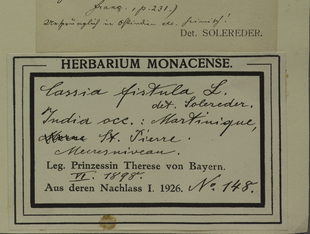 franç., p. 231.)
Ursprünglich in Ostindien etc. heimisch!
Det. SOLEREDER.
HERBARIUM MONACENSE.
Cassia fistula L.
det. Solereder.
India occ.: Martinique,
St. Pierre.
Meeresniveau.
Leg. Prinzessin Therese von Bayern.
VI. 1898.
Aus deren Nachlass I. 1926. No 148.